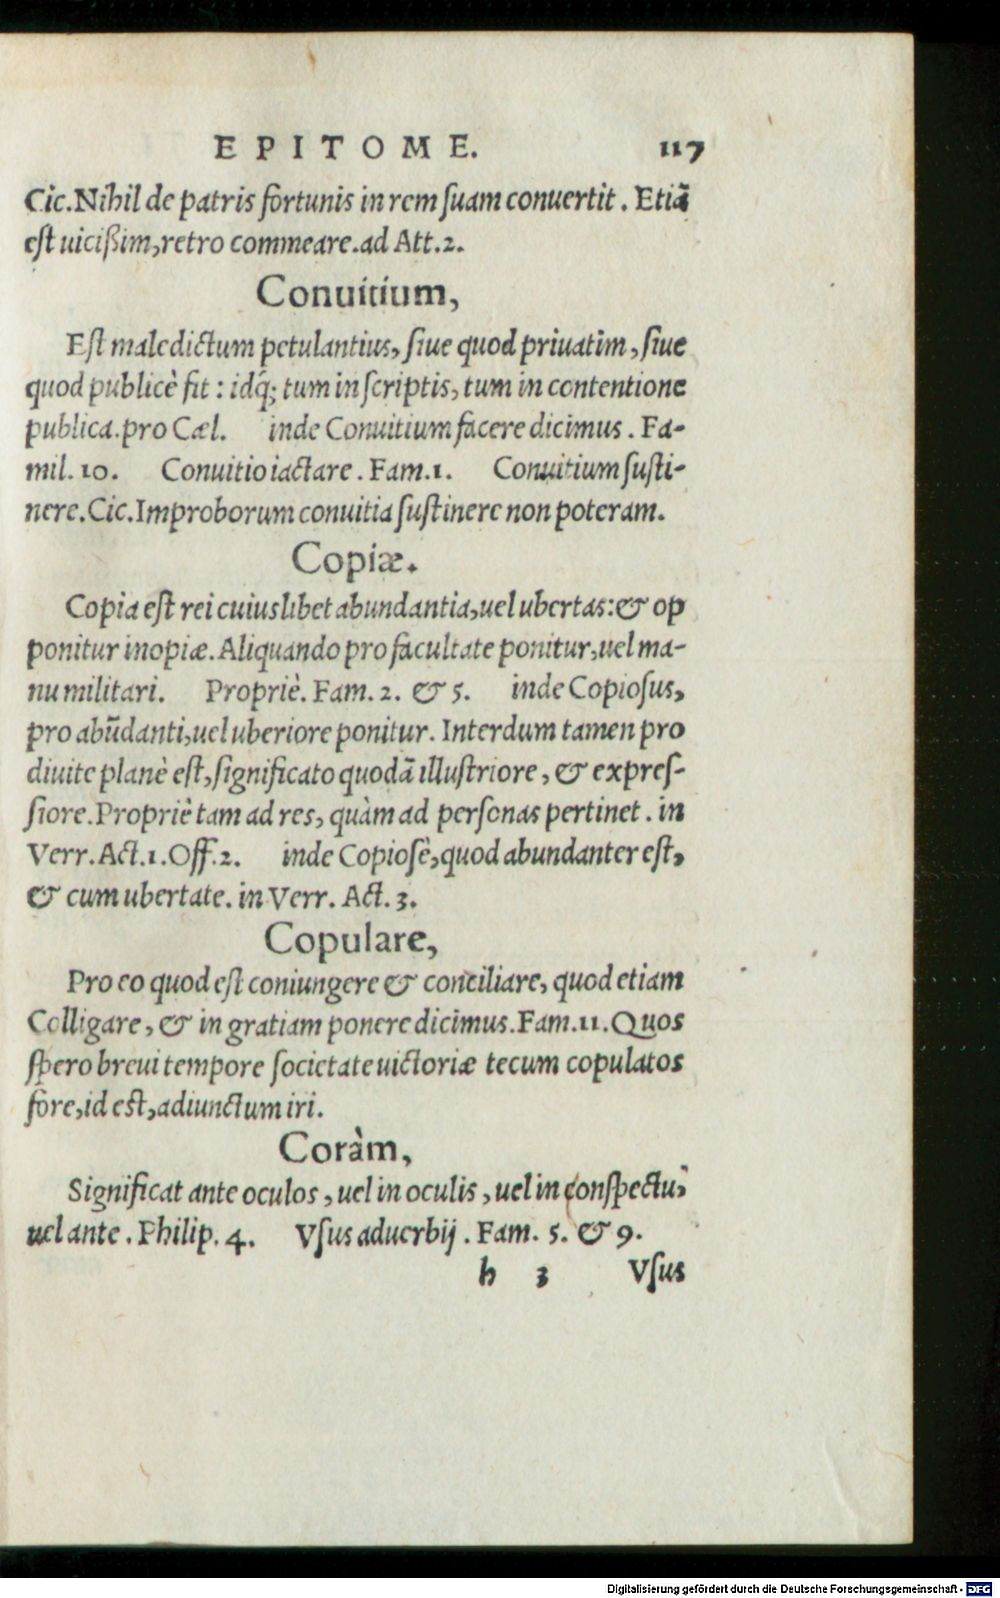 EPITOME. 117
Cic. Nihil de patris fortunis in rem ſuam conuertit. Etiã
eſt uicißim, retro commeare. ad Att. 2.
Conuitium,
Eſt maledictum petulantius, ſiue quod priuatim, ſiue
quod publicè fit: idq́; tum in ſcriptis, tum in contentione
publica. pro Cæl. inde Conuitium facere dicimus. Fa-
mil. 10. Conuitio iactare. Fam. 1. Conuitium ſuſti-
nere. Cic. Improborum conuitia ſuſtinere non poteram.
Copiæ.
Copia eſt rei cuiuslibet abundantia, uel ubertas: & op
ponitur inopiæ. Aliquando pro facultate ponitur, uel ma-
nu militari. Propriè. Fam. 2. & 5. inde Copioſus,
pro abũdanti, uel uberiore ponitur. Interdum tamen pro
diuite planè eſt, ſignificato quodã illuſtriore, & expreſ-
ſiore. Propriè tam ad res, quàm ad perſonas pertinet. in
Verr. Act. 1. Off. 2. inde Copioſè, quod abundanter eſt,
& cum ubertate. in Verr. Act. 3.
Copulare,
Pro eo quod eſt coniungere & conciliare, quod etiam
Colligare, & in gratiam ponere dicimus. Fam. 11. Quos
ſpero breui tempore ſocietate uictoriæ tecum copulatos
fore, id eſt, adiunctum iri.
Coràm,
Significat ante oculos, uel in oculis, uel in conſpectu,
uel ante. Philip. 4. Vſus aduerbij. Fam. 5. & 9.
h 3 Vſus
Digitalisierung gefördert durch die Deutsche Forschungsgemeinschaft - DFG